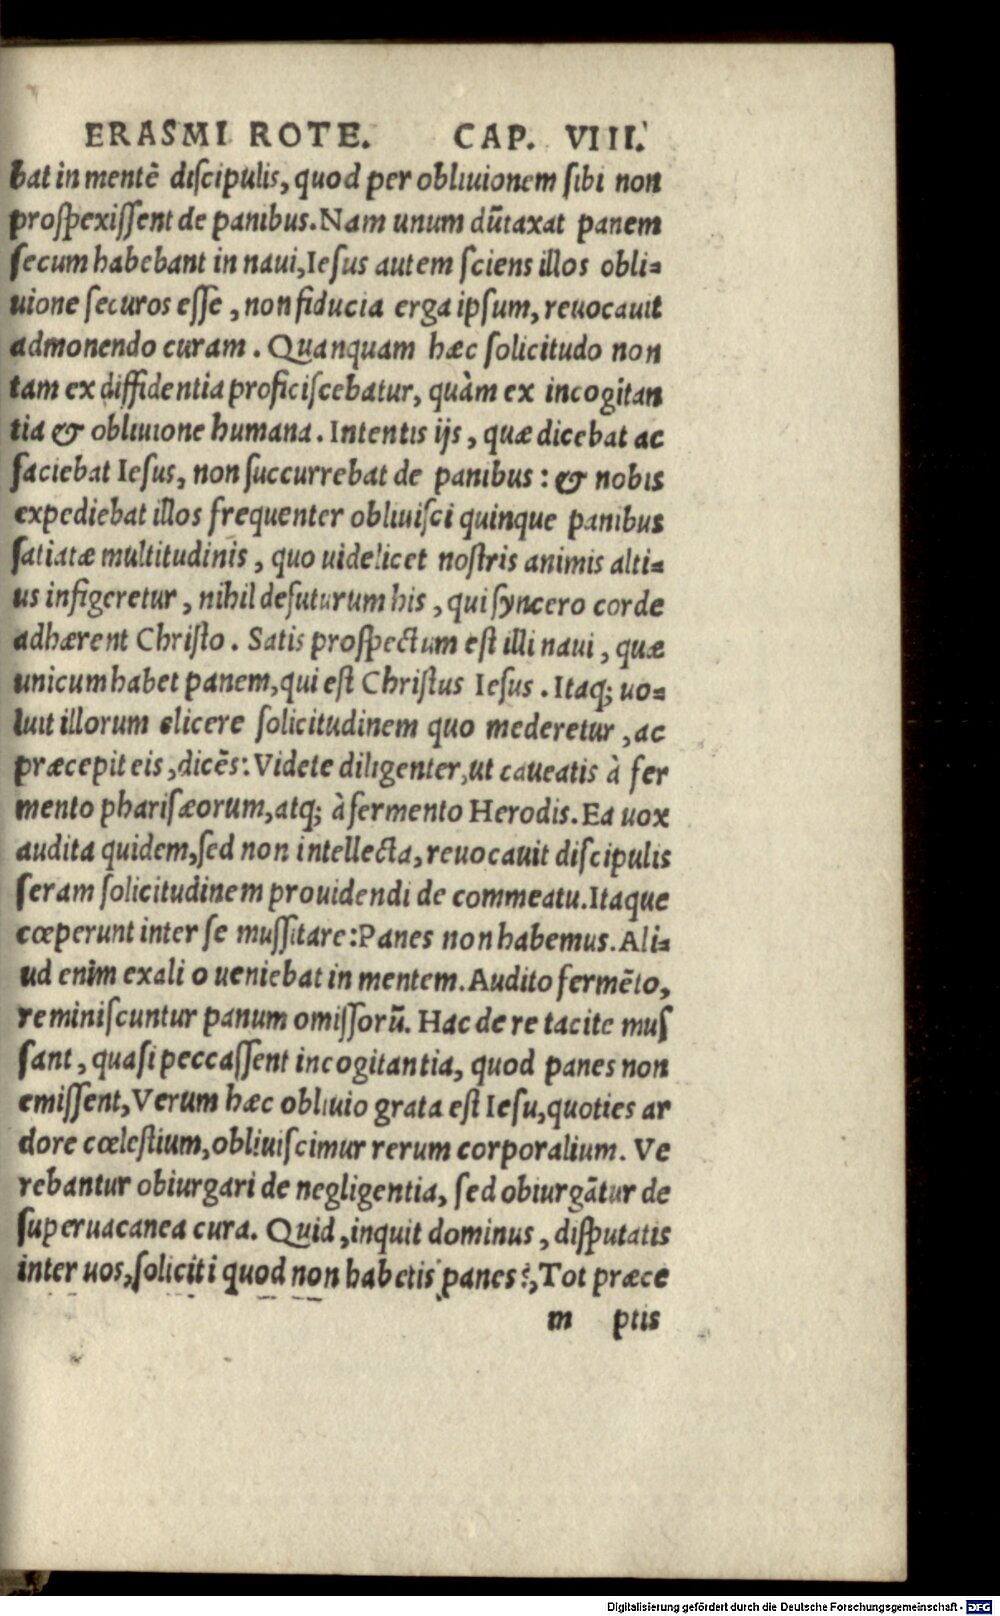 ERASMI ROTE. CAP. VIII.
bat in mentē diſcipulis, quod per obliuionem ſibi non
proſpexiſſent de panibus. Nam unum dūtaxat panem
ſecum habebant in naui, Ieſus autem ſciens illos obli⸗
uione ſecuros eſſe, non fiducia erga ipſum, reuocauit
admonendo curam. Quanquam hæc ſolicitudo non
tam ex diffidentia proficiſcebatur, quàm ex incogitan
tia & obliuione humana. Intentis ijs, quæ dicebat ac
faciebat Ieſus, non ſuccurrebat de panibus: & nobis
expediebat illos frequenter obliuiſci quinque panibus
ſatiatæ multitudinis, quo uidelicet noſtris animis alti⸗
us infigeretur, nihil defuturum his, qui ſyncero corde
adhærent Chriſto. Satis proſpectum eſt illi naui, quæ
unicum habet panem, qui eſt Chriſtus Ieſus. Itaq; uo⸗
luit illorum elicere ſolicitudinem quo mederetur, ac
præcepit eis, dicēs: Videte diligenter, ut caueatis à fer
mento phariſæorum, atq; à fermento Herodis. Ea uox
audita quidem, ſed non intellecta, reuocauit diſcipulis
ſeram ſolicitudinem prouidendi de commeatu. Itaque
cœperunt inter ſe muſſitare: Panes non habemus. Ali⸗
ud enim ex alio ueniebat in mentem. Audito fermēto,
reminiſcuntur panum omiſſorū. Hac de re tacite muſ
ſant, quaſi peccaſſent incogitantia, quod panes non
emiſſent, Verum hæc obliuio grata eſt Ieſu, quoties ar
dore cœleſtium, obliuiſcimur rerum corporalium. Ve
rebantur obiurgari de negligentia, ſed obiurgātur de
ſuperuacanea cura. Quid, inquit dominus, diſputatis
inter uos, ſoliciti quod non habetis panes?, Tot præce
m ptis
Digitalisierung gefördert durch die Deutsche Forschungsgemeinschaft - DFG